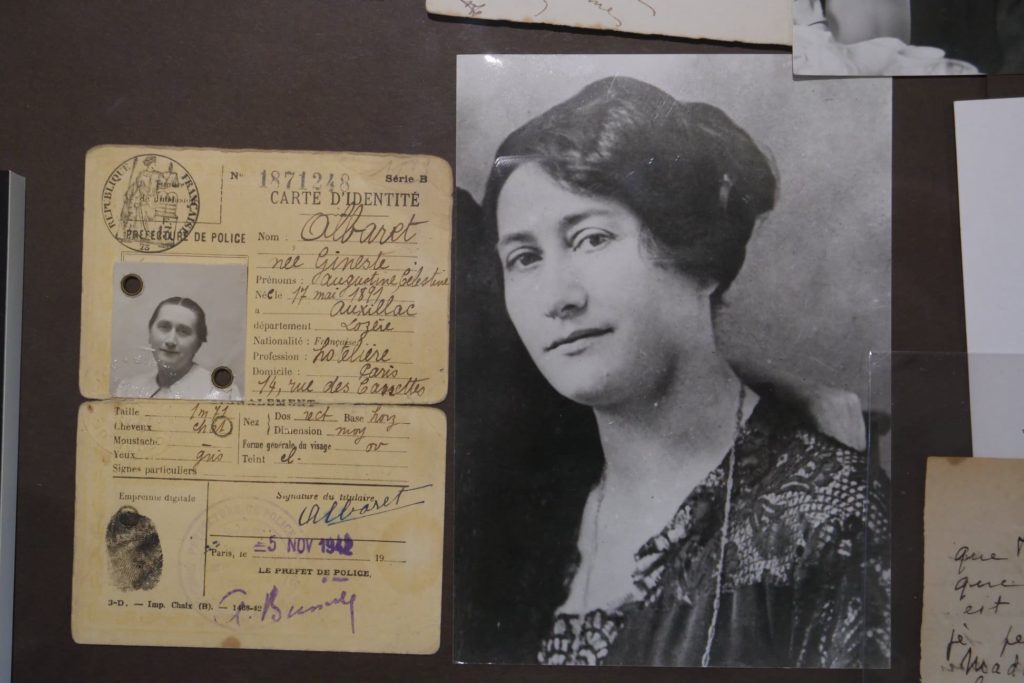 Nº 1871248 Série B
CARTE D'IDENTITÉ
RÉPUBLIQUE FRANÇAISE
PRÉFECTURE DE POLICE
Nom : Albaret
née Gineste
Prénoms : Augustine Célestine
Née le 17 mai 1891
à Auxillac
département Lozère
Nationalité : Française
Profession : hôtelière
Domicile : Paris
14, rue des Cannettes
SIGNALEMENT
Taille 1m71
Cheveux chat
Moustache
Yeux gris
Signes particuliers
Nez
Dos rect Base hory
Dimension moy
Forme générale du visage ov
Teint cl.
Empreinte digitale
Signature du titulaire
Albaret
Paris, le 5 NOV 1942 19
LE PRÉFET DE POLICE,
3-D. — Imp. Chaix (B). — 1468-42
que
que
est
je
Mad